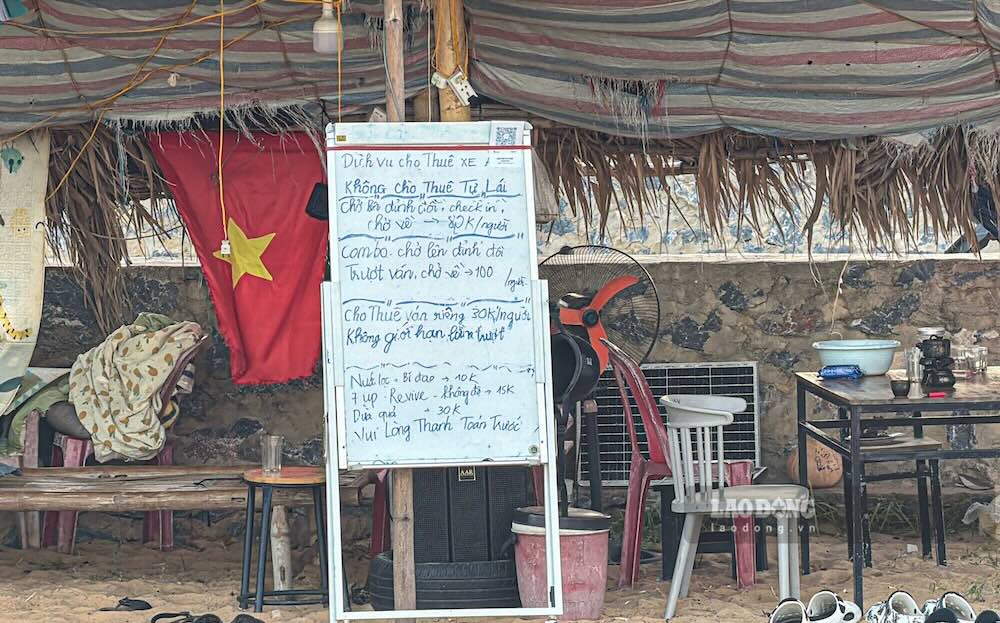 Dịch vụ cho Thuê XE
Không cho Thuê Tự Lái
Chở lên đỉnh đồi, check in,
chở về → 80K/người
Combo. chở lên đỉnh đồi
Trượt ván, chở về → 100
/người
Cho Thuê ván riêng 30K/người
Không giới hạn lần trượt
Nước lọc - Bí đao → 10K
7 up - Revive - không độ → 15K
Dừa quả → 30K
Vui Lòng Thanh Toán Trước
LAO ĐỘNG
laodong.vn